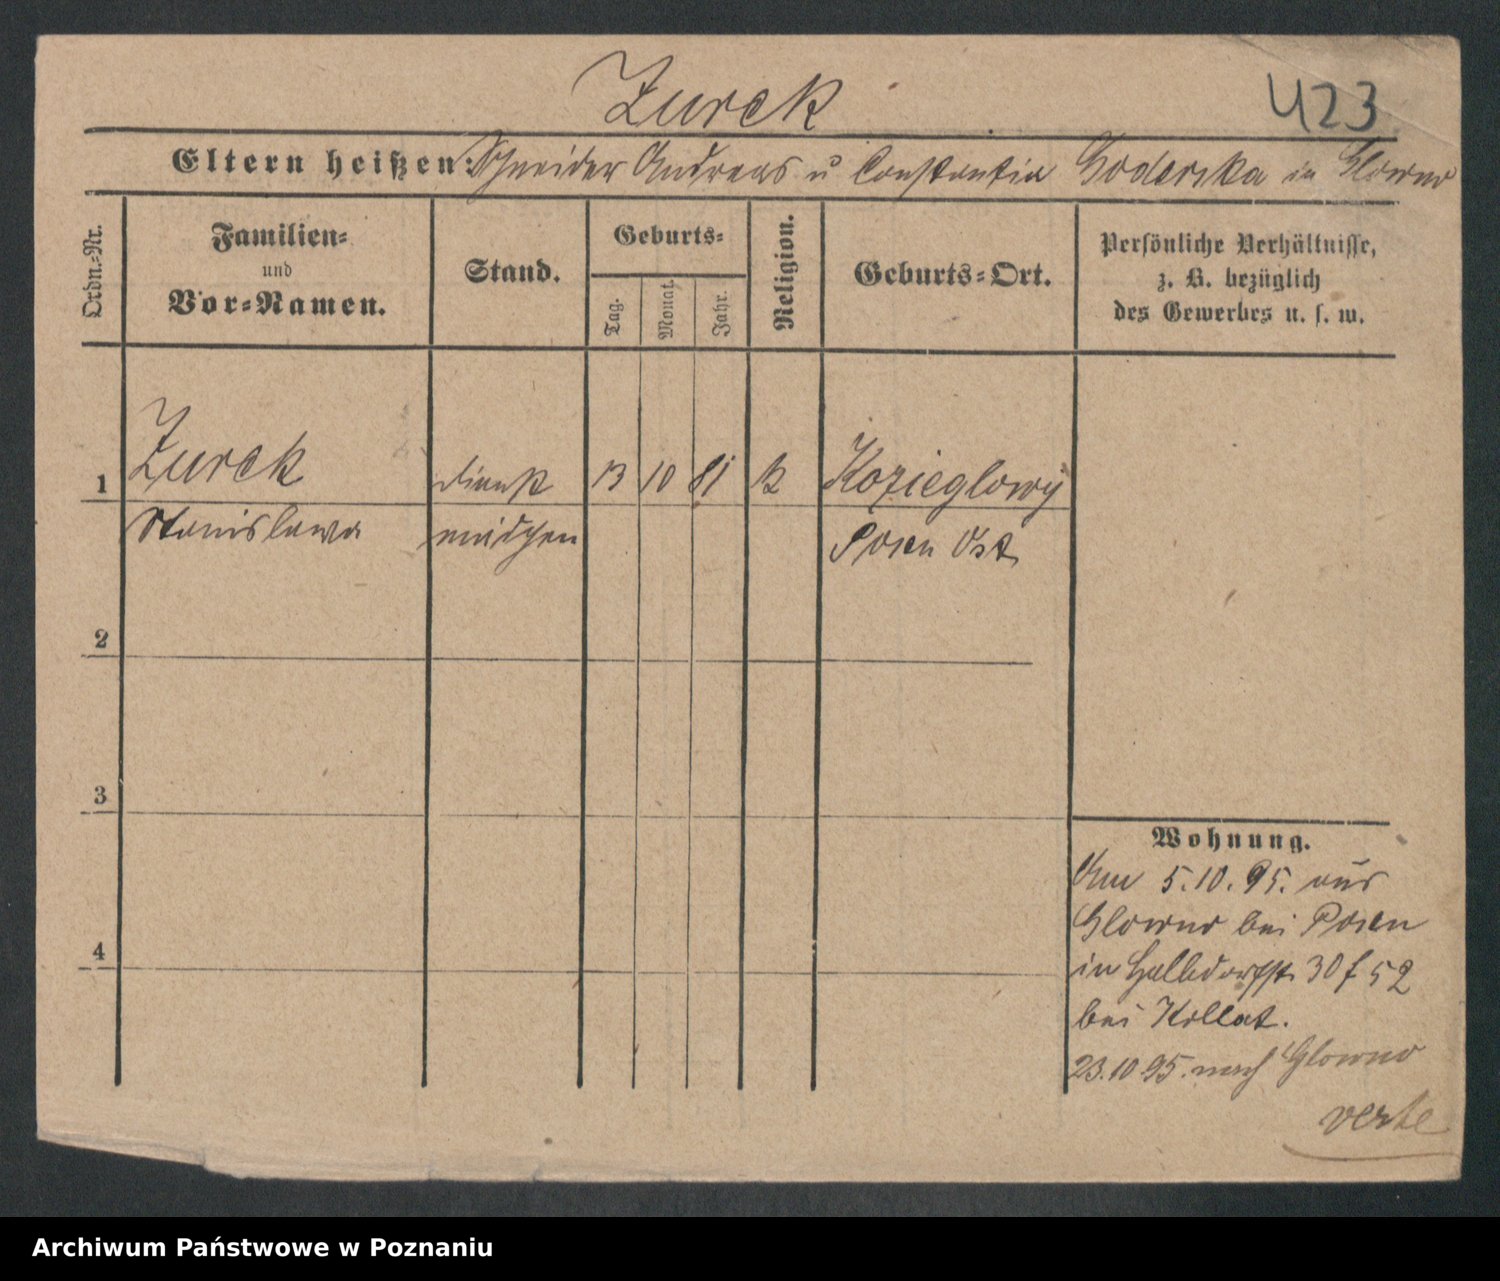 Zurek
423
Eltern heißen: Schneider Andreas u Constantia Goderska in Glowno
Ordn.-Nr.
Familien-
und
Vor-Namen.
Stand.
Geburts-
Tag.
Monat.
Jahr.
Religion.
Geburts-Ort.
Persönliche Verhältnisse,
z. B. bezüglich
des Gewerbes u. s. w.
1 Zurek dienst 13 10 81 k Kozieglowy
Stanislawa mädchen Posen Ost
2
3
4
Wohnung.
Am 5.10.95. aus
Glowno bei Posen
in Halbdorfst. 30 f 52
bei Kollat.
23.10.95. nach Glowno
verte
Archiwum Państwowe w Poznaniu